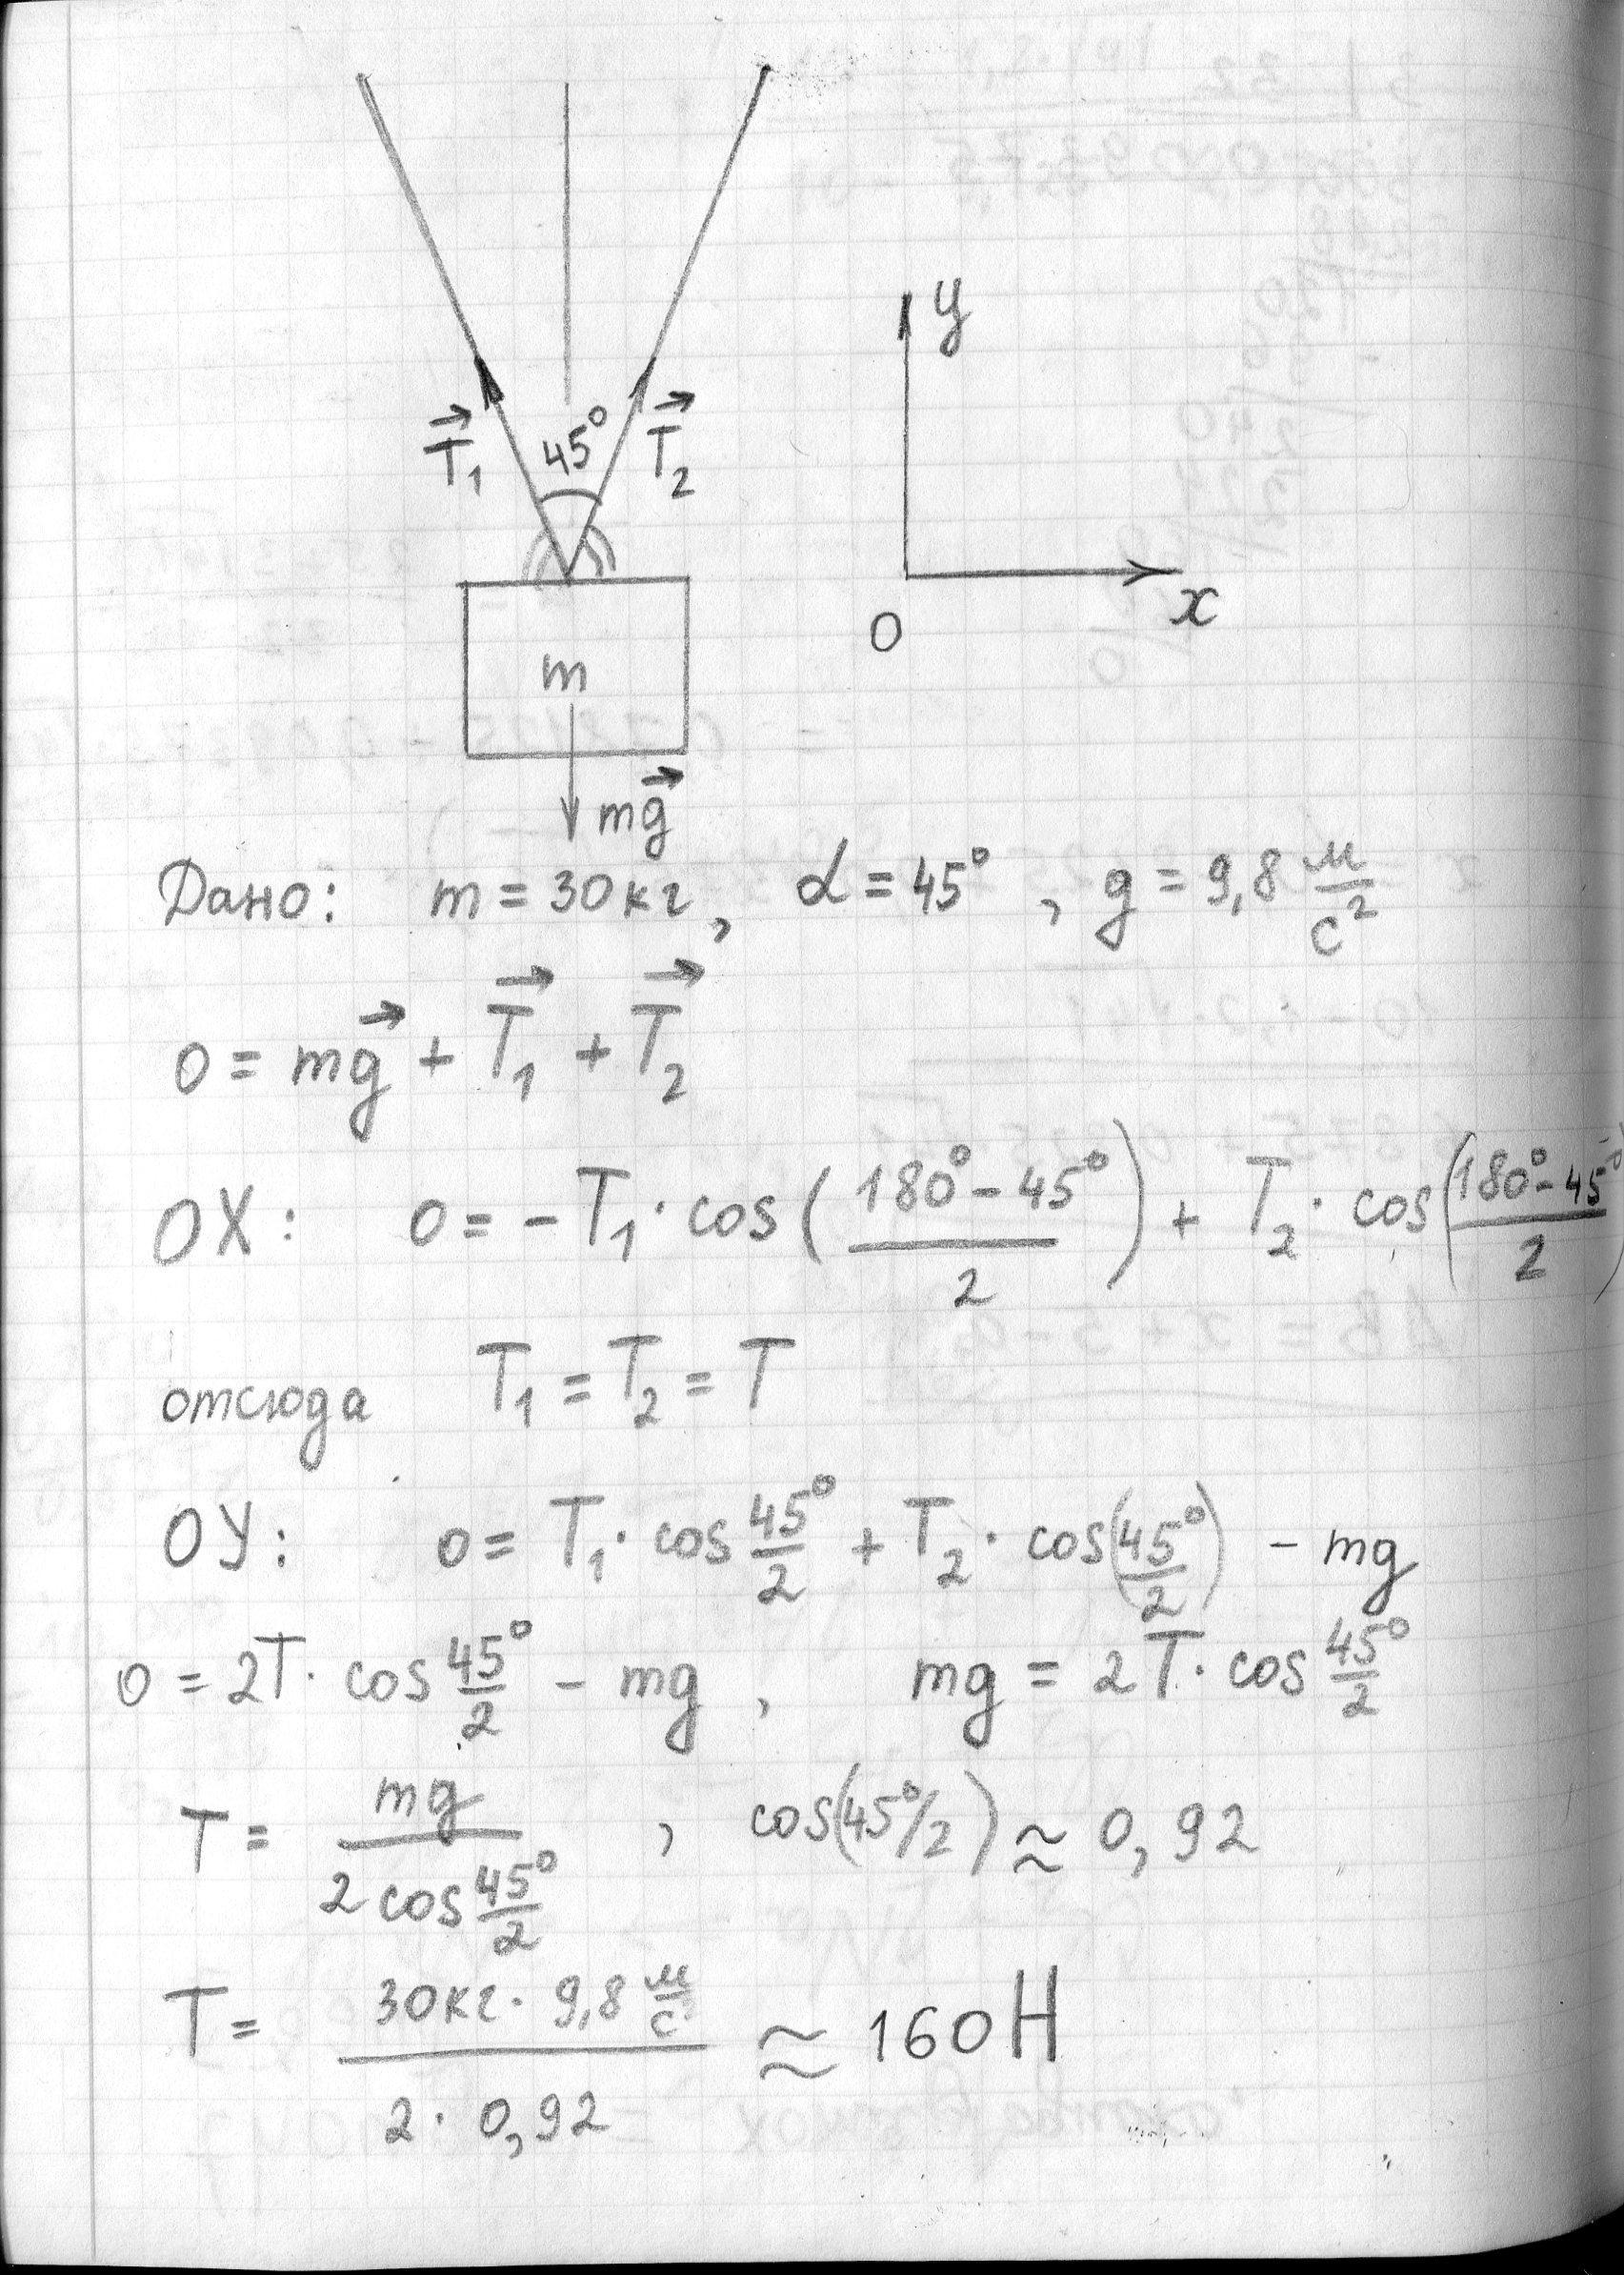 y
T₁ 45° T₂
0 x
m
mg
Дано: m = 30 кг, α = 45°, g = 9,8 м/с²
0 = mg + T₁ + T₂
OX: 0 = - T₁ · cos ( (180° - 45°)/2 ) + T₂ · cos ( (180° - 45°)/2 )
отсюда T₁ = T₂ = T
OY: 0 = T₁ · cos 45°/2 + T₂ · cos (45°/2) - mg
0 = 2T · cos 45°/2 - mg , mg = 2T · cos 45°/2
T = mg / 2 cos 45°/2 , cos(45°/2) ≈ 0,92
T = 30 кг · 9,8 м/с² / 2 · 0,92 ≈ 160 Н